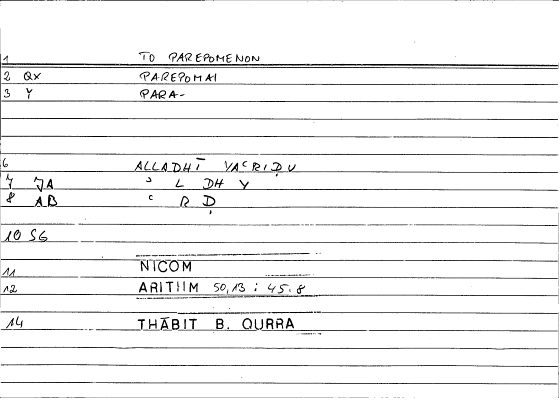 1 TO PAREPOMENON
2 QX PAREPOMAI
3 Y PARA-
6 ALLADHĪ YAʿRIḌU
7 JA ʾ L DH Y
8 AB ʿ R Ḍ
10 SG
11 NICOM
12 ARITIIM 50,13 : 45.8
14 THĀBIT B. QURRA